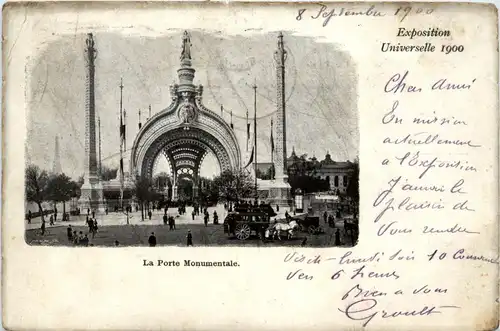 8 Septembre 1900
Exposition
Universelle 1900
Cher Ami
En mission
actuellement
à l'Exposition
J'aurai le
plaisir de
vous rendre
visite lundi soir 10 courant
vers 6 heures
Bien à vous
La Porte Monumentale.